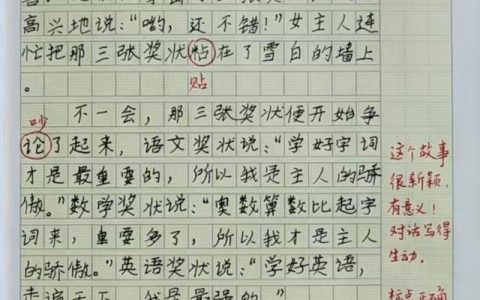 高兴地说:“哟,还不错!”女主人连
忙把那三张奖状粘在了雪白的墙上
贴
。
不一会,那三张奖状便开始争
吵
论了起来,语文奖状说:“学好字词
才是最重要的,所以我是主人的骄
傲。”数学奖状说:“奥数算数比起字
词来,重要多了,所以我才是主人
的骄傲。”英语奖状说:“学好英语,
走遍天下,我是最强的”
这个故事
很新颖,
有意义!
对话写得
生动.
标点正确